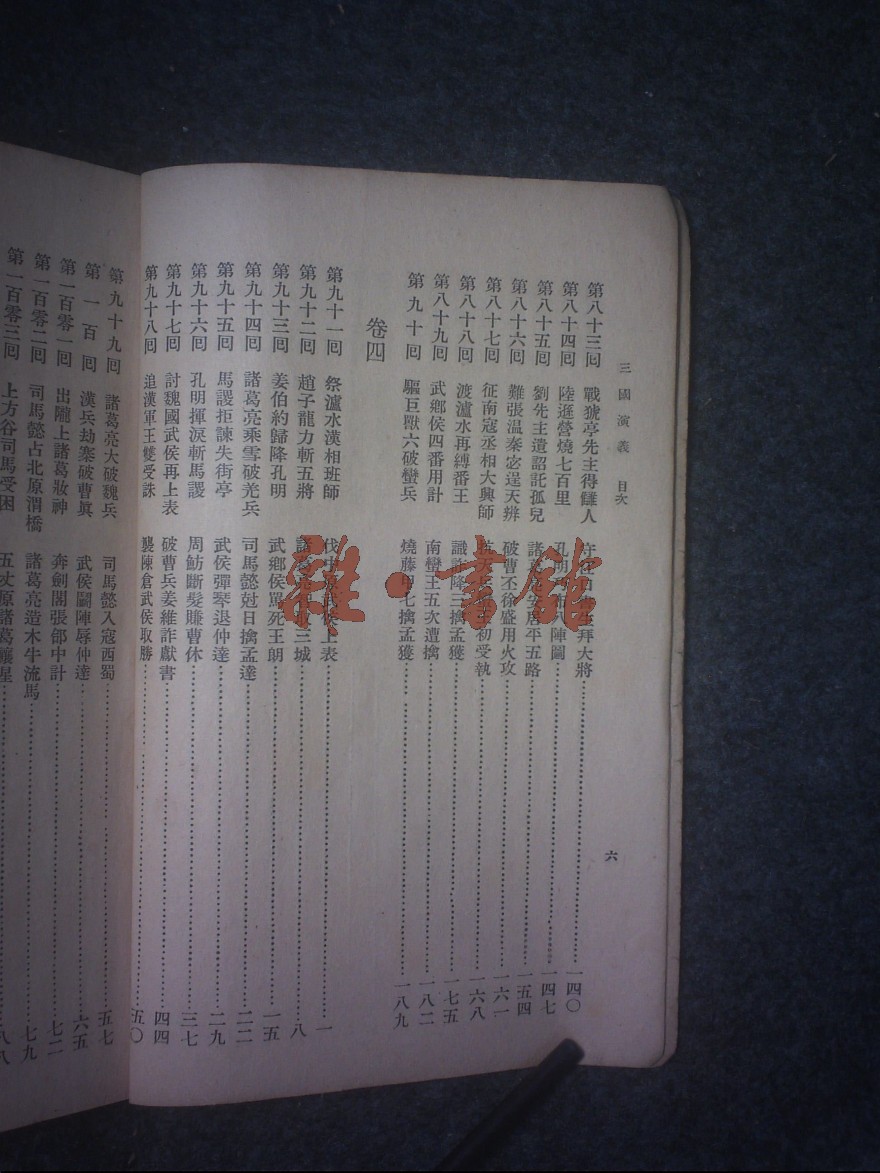 三國演義 目次 六
第八十三回 戰猇亭先主得讎人 守江口書生拜大將 一四〇
第八十四回 陸遜營燒七百里 孔明 布八陣圖 一四七
第八十五回 劉先主遺詔託孤兒 諸葛亮安居平五路 一五四
第八十六回 難張温秦宓逞天辨 破曹丕徐盛用火攻 一六一
第八十七回 征南寇丞相大興師 抗天兵蠻王初受執 一六八
第八十八回 渡瀘水再縛番王 識詐降三擒孟獲 一七五
第八十九回 武鄉侯四番用計 南蠻王五次遭擒 一八二
第九十回 驅巨獸六破蠻兵 燒藤甲七擒孟獲 一八九
卷四
第九十一回 祭瀘水漢相班師 伐中原武侯上表 一
第九十二回 趙子龍力斬五將 諸葛亮智取三城 八
第九十三回 姜伯約歸降孔明 武鄉侯罵死王朗 一五
第九十四回 諸葛亮乘雪破羌兵 司馬懿尅日擒孟達 二二
第九十五回 馬謖拒諫失街亭 武侯彈琴退仲達 二九
第九十六回 孔明揮淚斬馬謖 周魴斷髮賺曹休 三七
第九十七回 討魏國武侯再上表 破曹兵姜維詐獻書 四四
第九十八回 追漢軍王雙受誅 襲陳倉武侯取勝 五〇
第九十九回 諸葛亮大破魏兵 司馬懿入寇西蜀 五七
第一百回 漢兵劫寨破曹眞 武侯鬭陣辱仲達 六五
第一百零一回 出隴上諸葛妝神 奔劍閣張郃中計 七二
第一百零二回 司馬懿占北原渭橋 諸葛亮造木牛流馬 七九
第一百零三回 上方谷司馬受困 五丈原諸葛禳星 八八
雜·書館